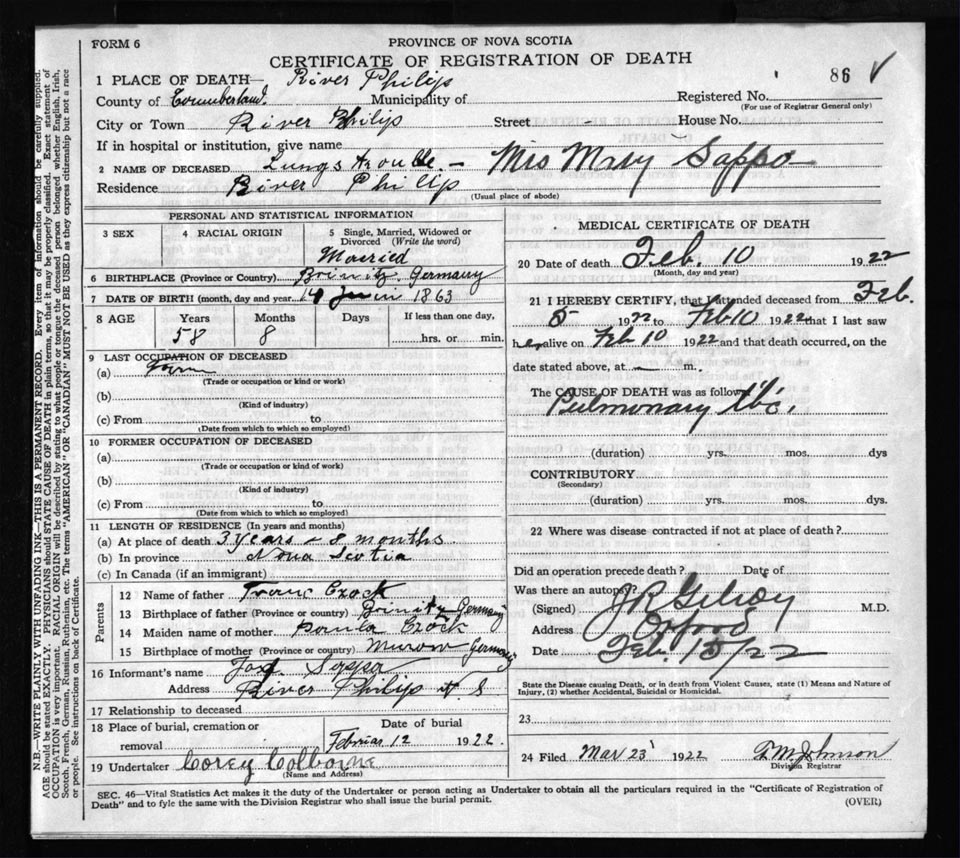 FORM 6
PROVINCE OF NOVA SCOTIA
CERTIFICATE OF REGISTRATION OF DEATH
1 PLACE OF DEATH— River Philip
86
County of Cumberland. Municipality of
Registered No.
(For use of Registrar General only)
City or Town River Philip Street - House No.
If in hospital or institution, give name
2 NAME OF DECEASED Lungs trouble - Mrs Mary Sappa
Residence River Philip
(Usual place of abode)
PERSONAL AND STATISTICAL INFORMATION
3 SEX
4 RACIAL ORIGIN
5 Single, Married, Widowed or Divorced (Write the word)
Married
6 BIRTHPLACE (Province or Country) Brinitz. Germany
7 DATE OF BIRTH (month, day and year) 14 1863
8 AGE
Years 58
Months 8
Days
If less than one day,
hrs. or min.
9 LAST OCCUPATION OF DECEASED
(a)
(Trade or occupation or kind or work)
(b)
(Kind of industry)
(c) From to
(Date from which to which so employed)
10 FORMER OCCUPATION OF DECEASED
(a)
(Trade or occupation or kind of work)
(b)
(Kind of industry)
(c) From to
(Date from which to which so employed)
11 LENGTH OF RESIDENCE (In years and months)
(a) At place of death 3 years - 8 months
(b) In province Nova Scotia
(c) In Canada (if an immigrant)
Parents
12 Name of father Franc Czock
13 Birthplace of father (Province or country) Brinitz Germany
14 Maiden name of mother Czock
15 Birthplace of mother (Province or country) Murow Germany
16 Informant's name Sappa
Address River Philip N S
17 Relationship to deceased
18 Place of burial, cremation or removal
Date of burial
12 1922.
19 Undertaker Corey Colborne
(Name and Address)
MEDICAL CERTIFICATE OF DEATH
20 Date of death Feb. 10 1922
(Month, day and year)
21 I HEREBY CERTIFY, that I attended deceased from Feb.
5 1922 to Feb 10 1922 that I last saw
her alive on Feb 10 1922 and that death occurred, on the
date stated above, at — m.
The CAUSE OF DEATH was as follows:
Pulmonary tbc.
(duration) yrs. mos. dys
CONTRIBUTORY
(Secondary)
(duration) yrs. mos. dys.
22 Where was disease contracted if not at place of death?
Did an operation precede death? Date of
Was there an autopsy?
(Signed) J R Gilroy M.D.
Address Oxford
Date Feb. 13/22
State the Disease causing Death, or in death from Violent Causes, state (1) Means and Nature of
Injury, (2) whether Accidental, Suicidal or Homicidal.
23
24 Filed Mar 23 1922 Johnson
Division Registrar
SEC. 46—Vital Statistics Act makes it the duty of the Undertaker or person acting as Undertaker to obtain all the particulars required in the "Certificate of Registration of
Death" and to fyle the same with the Division Registrar who shall issue the burial permit.
(OVER)
N.B.—WRITE PLAINLY WITH UNFADING INK—THIS IS A PERMANENT RECORD. Every item of information should be carefully supplied.
AGE should be stated EXACTLY. PHYSICIANS should STATE CAUSE OF DEATH in plain terms, so that it may be properly classified. Exact statement of
OCCUPATION is very important. RACIAL ORIGIN will be described by stating to what people or tongue the deceased person belonged, whether English, Irish,
Scotch, French, German, Russian, Ruthenian, etc. The terms "AMERICAN" OR "CANADIAN" MUST NOT BE USED as they express citizenship but not a race
or people. See instructions on back of Certificate.